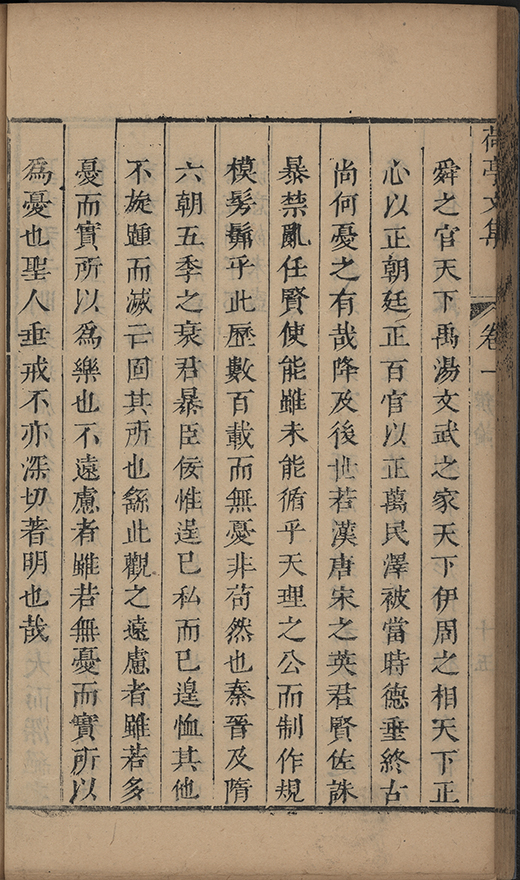 荷亭文集　卷一
舜之官天下禹湯文武之家天下伊周之相天下正
心以正朝廷正百官以正萬民澤被當時德垂終古
尚何憂之有哉降及後世若漢唐宋之英君賢佐誅
暴禁亂任賢使能雖未能循乎天理之公而制作規
模髣髴乎此歷數百載而無憂非苟然也秦晉及隋
六朝五季之衰君暴臣佞惟逞巳私而巳遑恤其他
不旋踵而滅亡固其所也繇此觀之遠慮者雖若多
憂而實所以爲樂也不遠慮者雖若無憂而實所以
爲憂也聖人垂戒不亦深切著明也哉